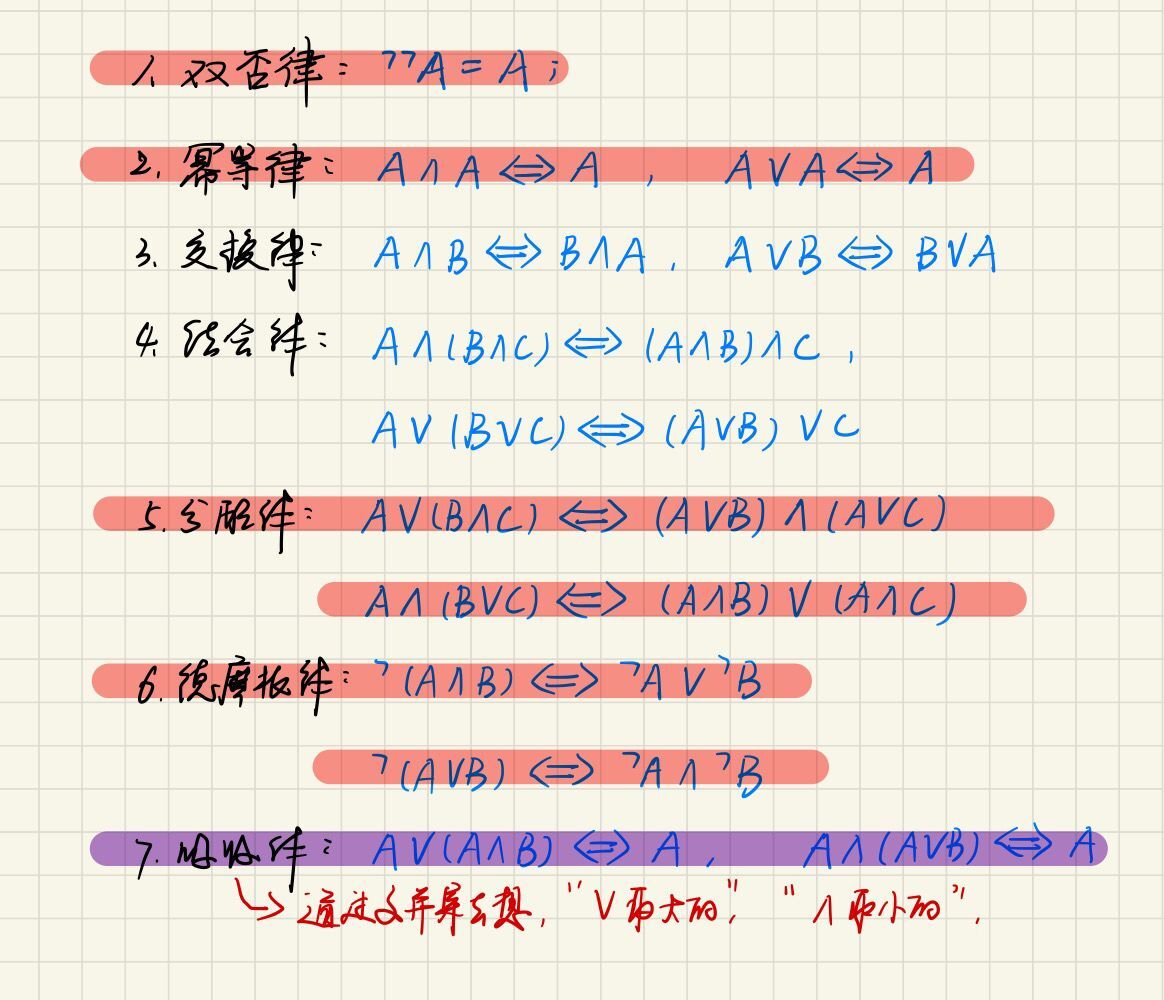 1. 双否律: ¬¬A = A ;
2. 幂等律: A ∧ A ⇔ A , A ∨ A ⇔ A
3. 交换律: A ∧ B ⇔ B ∧ A , A ∨ B ⇔ B ∨ A
4. 结合律: A ∧ (B ∧ C) ⇔ (A ∧ B) ∧ C ,
A ∨ (B ∨ C) ⇔ (A ∨ B) ∨ C
5. 分配律: A ∨ (B ∧ C) ⇔ (A ∨ B) ∧ (A ∨ C)
A ∧ (B ∨ C) ⇔ (A ∧ B) ∨ (A ∧ C)
6. 德摩根律: ¬(A ∧ B) ⇔ ¬A ∨ ¬B
¬(A ∨ B) ⇔ ¬A ∧ ¬B
7. 吸收律: A ∨ (A ∧ B) ⇔ A , A ∧ (A ∨ B) ⇔ A
↳ 通过交并集去想, "∨ 取大的", "∧ 取小的".